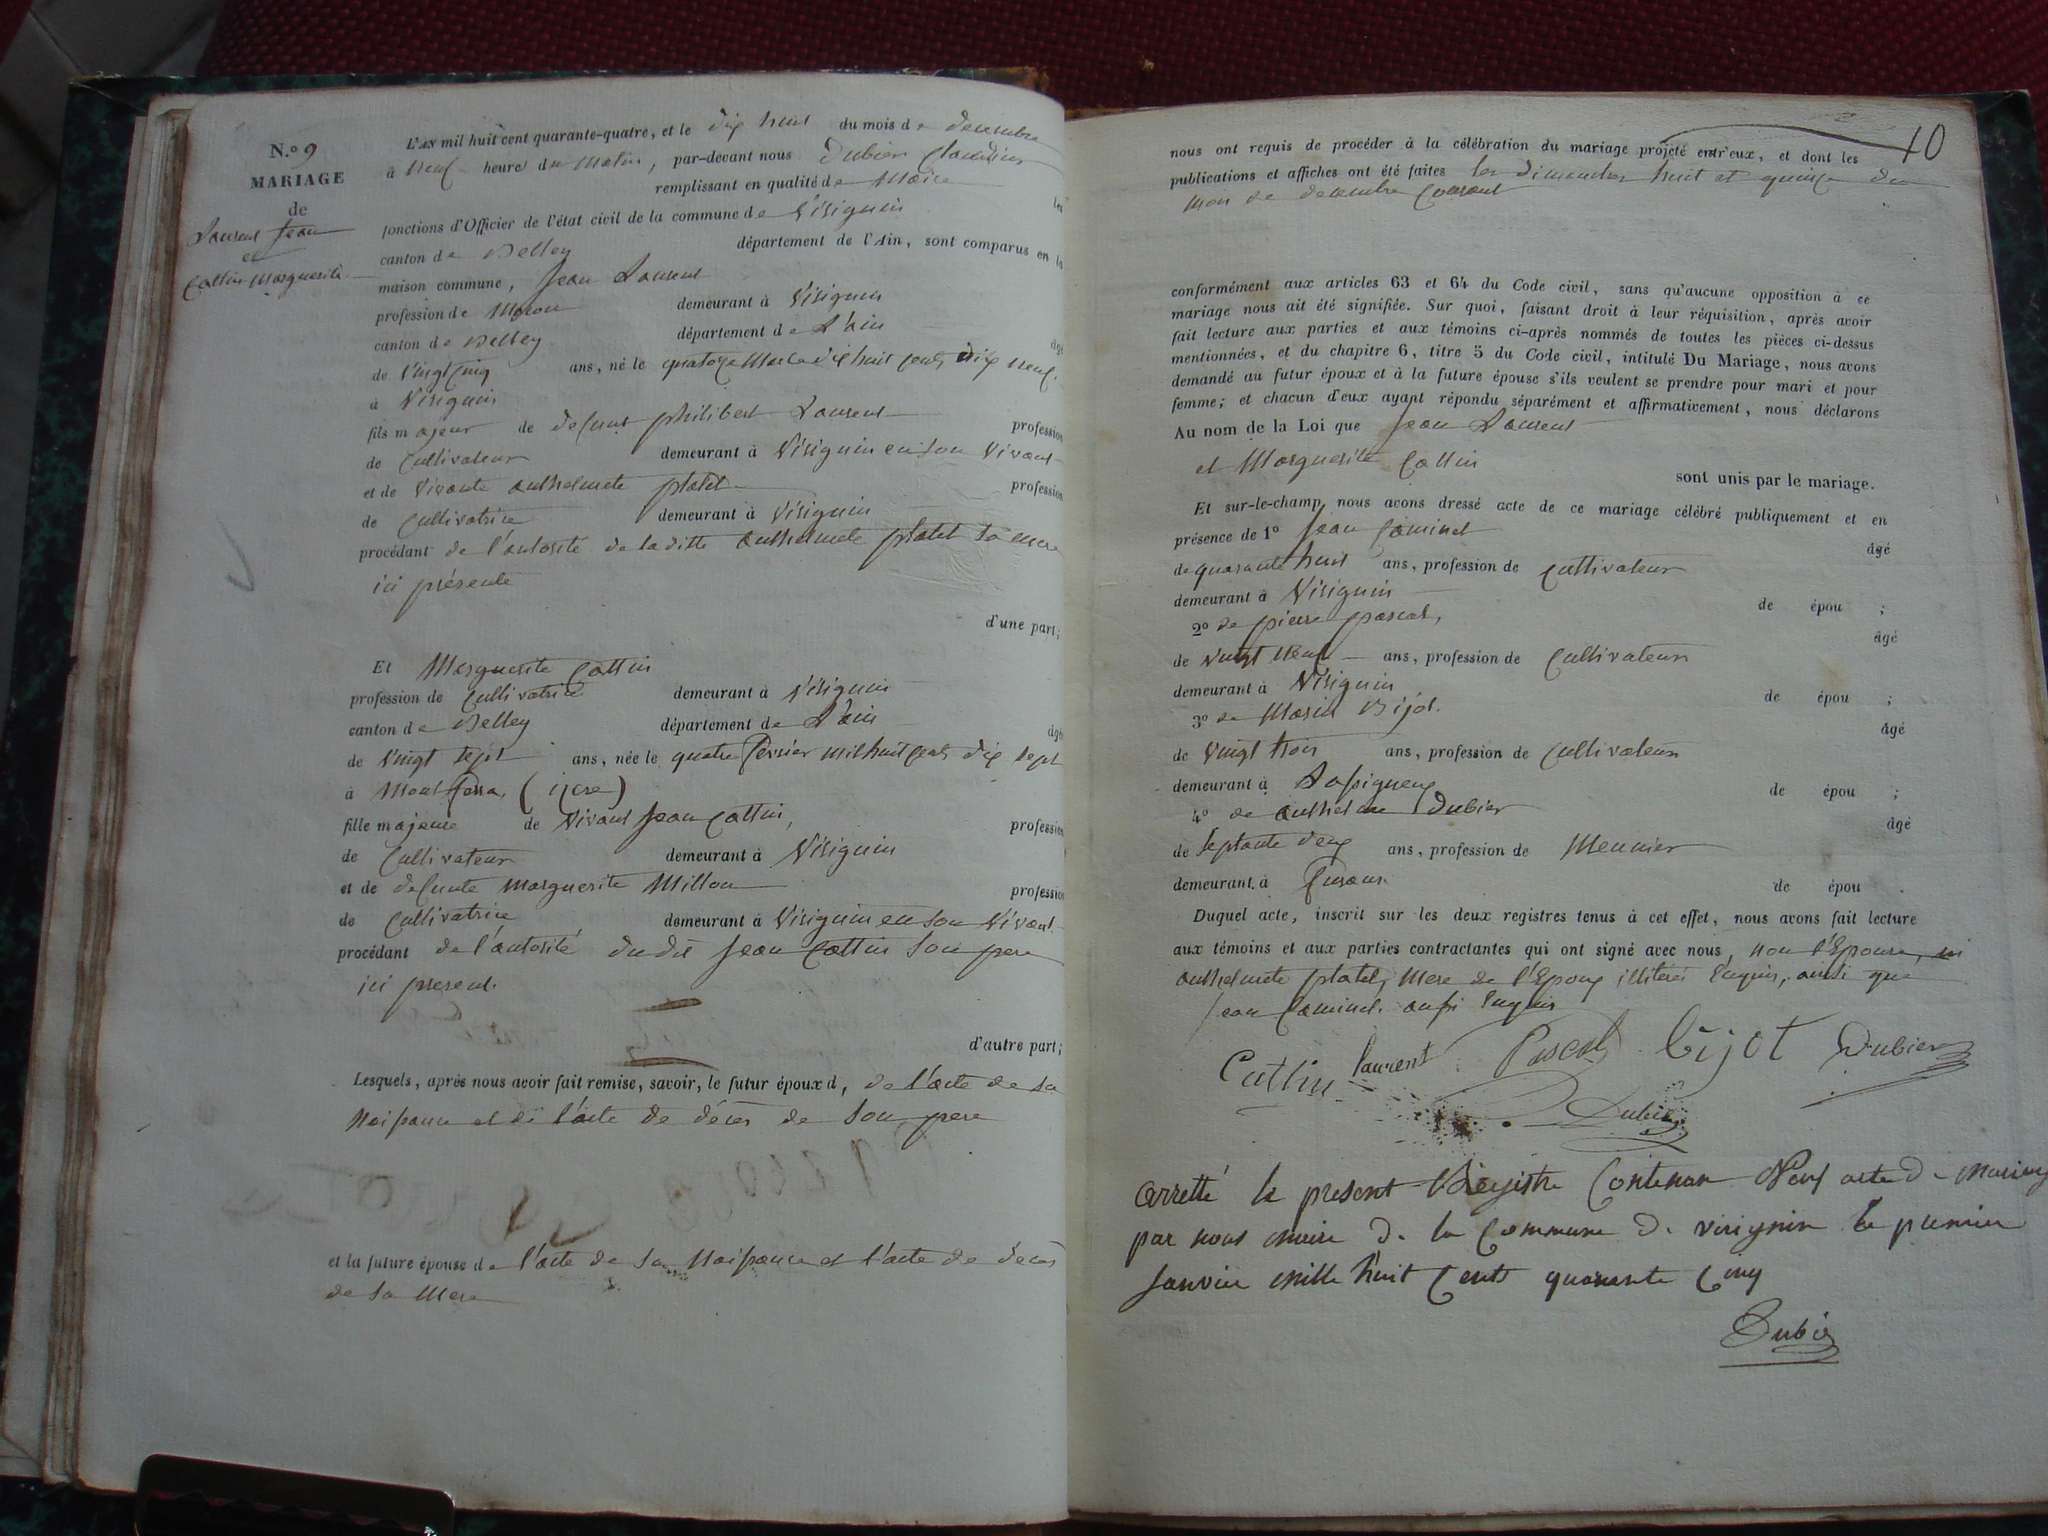 N.o 9
MARIAGE
de
Laurent Jean
et
Cattin Marguerite
L'AN mil huit cent quarante-quatre, et le dix huit du mois de decembre
à neuf heure du Matin, par-devant nous Dubier Claudius
remplissant en qualité de Maire les
fonctions d'Officier de l'état civil de la commune de Virignin
canton de Belley département de l'Ain, sont comparus en la
maison commune, Jean Laurent
profession de Maçon demeurant à Virignin
canton de Belley département de L'ain âgé
de Vingt Cinq ans, né le quatorze Mars mil huit cents dix neuf.
à Virignin
fils majeur de defunt philibert Laurent profession
de Cultivateur demeurant à Virignin en son Vivant
et de Vivante anthelmete platet profession
de Cultivatrice demeurant à Virignin
procédant de l'autorité de la ditte anthelmete platet sa mere
ici présente
d'une part;
Et Marguerite Cattin
profession de Cultivatrice demeurant à Virignin
canton de Belley département de L'ain âgée
de Vingt sept ans, née le quatre fevrier mil huit cents dix sept
à Montferra, (isere)
fille majeure de Vivant Jean Cattin, profession
de Cultivateur demeurant à Virignin
et de defunte Marguerite Millon profession
de Cultivatrice demeurant à Virignin en son Vivant
procédant de l'autorité dudit Jean Cattin son pere
ici present.
d'autre part;
Lesquels, après nous avoir fait remise, savoir, le futur époux d, de l'acte de sa
Naissance et de l'acte de décès de son pere
et la future épouse de l'acte de sa Naissance et l'acte de décès
de sa Mere
10
nous ont requis de procéder à la célébration du mariage projeté entr'eux, et dont les
publications et affiches ont été faites les dimanches huit et quinze du
mois de decembre Courant
conformément aux articles 63 et 64 du Code civil, sans qu'aucune opposition à ce
mariage nous ait été signifiée. Sur quoi, faisant droit à leur réquisition, après avoir
fait lecture aux parties et aux témoins ci-après nommés de toutes les pièces ci-dessus
mentionnées, et du chapitre 6, titre 5 du Code civil, intitulé Du Mariage, nous avons
demandé au futur époux et à la future épouse s'ils veulent se prendre pour mari et pour
femme; et chacun d'eux ayant répondu séparément et affirmativement, nous déclarons
Au nom de la Loi que Jean Laurent
et Marguerite Cattin
sont unis par le mariage.
Et sur-le-champ nous avons dressé acte de ce mariage célébré publiquement et en
présence de 1o Jean Caminet
âgé
de quarante huit ans, profession de Cultivateur
demeurant à Virignin de épou ;
2o de pierre pascal, âgé
de Vingt neuf ans, profession de Cultivateur
demeurant à Virignin de épou ;
3o de Marin Bijot. âgé
de Vingt trois ans, profession de Cultivateur
demeurant à de épou ;
4o de anthelme Dubier âgé
de septante deux ans, profession de Meunier
demeurant à de épou .
Duquel acte, inscrit sur les deux registres tenus à cet effet, nous avons fait lecture
aux témoins et aux parties contractantes qui ont signé avec nous, non l'Epouse, ni
anthelmete platet, Mere de l'Epoux illitérés Enquis, ainsi que
Jean Caminet. aussi Enquis
Cattin laurent Pascal bijot Dubier
Dubier
arretté le present Registre Contenan Neuf acte de Mariage
par nous maire de la Commune de virignin le premier
Janvier mille huit Cents quarante Cinq
Dubier